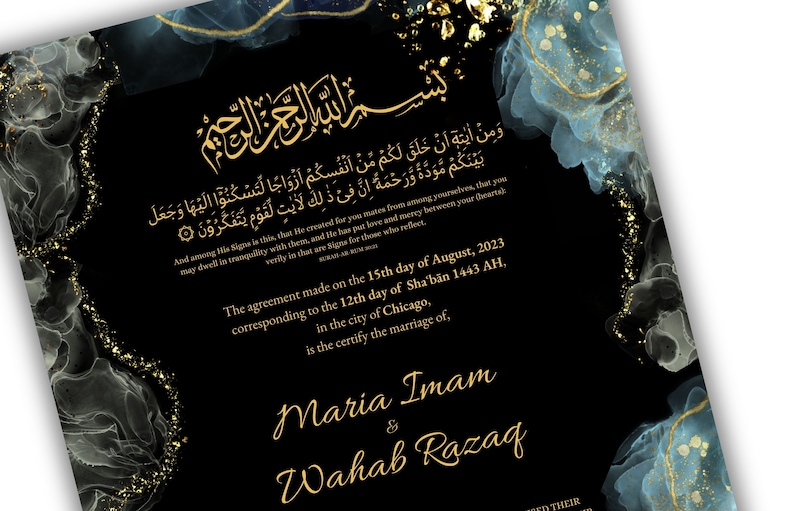 بسم الله الرحمن الرحيم
وَمِنْ اٰيٰتِهٖۤ اَنْ خَلَقَ لَكُمْ مِّنْ اَنْفُسِكُمْ اَزْوَاجًا لِّتَسْكُنُوْۤا اِلَيْهَا وَجَعَلَ
بَيْنَكُمْ مَّوَدَّةً وَّرَحْمَةً اِنَّ فِىْ ذٰ لِكَ لَاٰيٰتٍ لِّقَوْمٍ يَّتَفَكَّرُوْنَ ۞
And among His Signs is this, that He created for you mates from among yourselves, that you
may dwell in tranquility with them, and He has put love and mercy between your (hearts):
verily in that are Signs for those who reflect.
SURAH-AR-RUM 20:21
The agreement made on the 15th day of August, 2023
corresponding to the 12th day of Sha'bān 1443 AH,
in the city of Chicago,
is the certify the marriage of,
Maria Imam
&
Wahab Razaq
THEIR